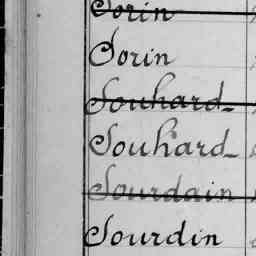 Sorin
Sorin
Souhard
Souhard
Sourdain
Sourdin